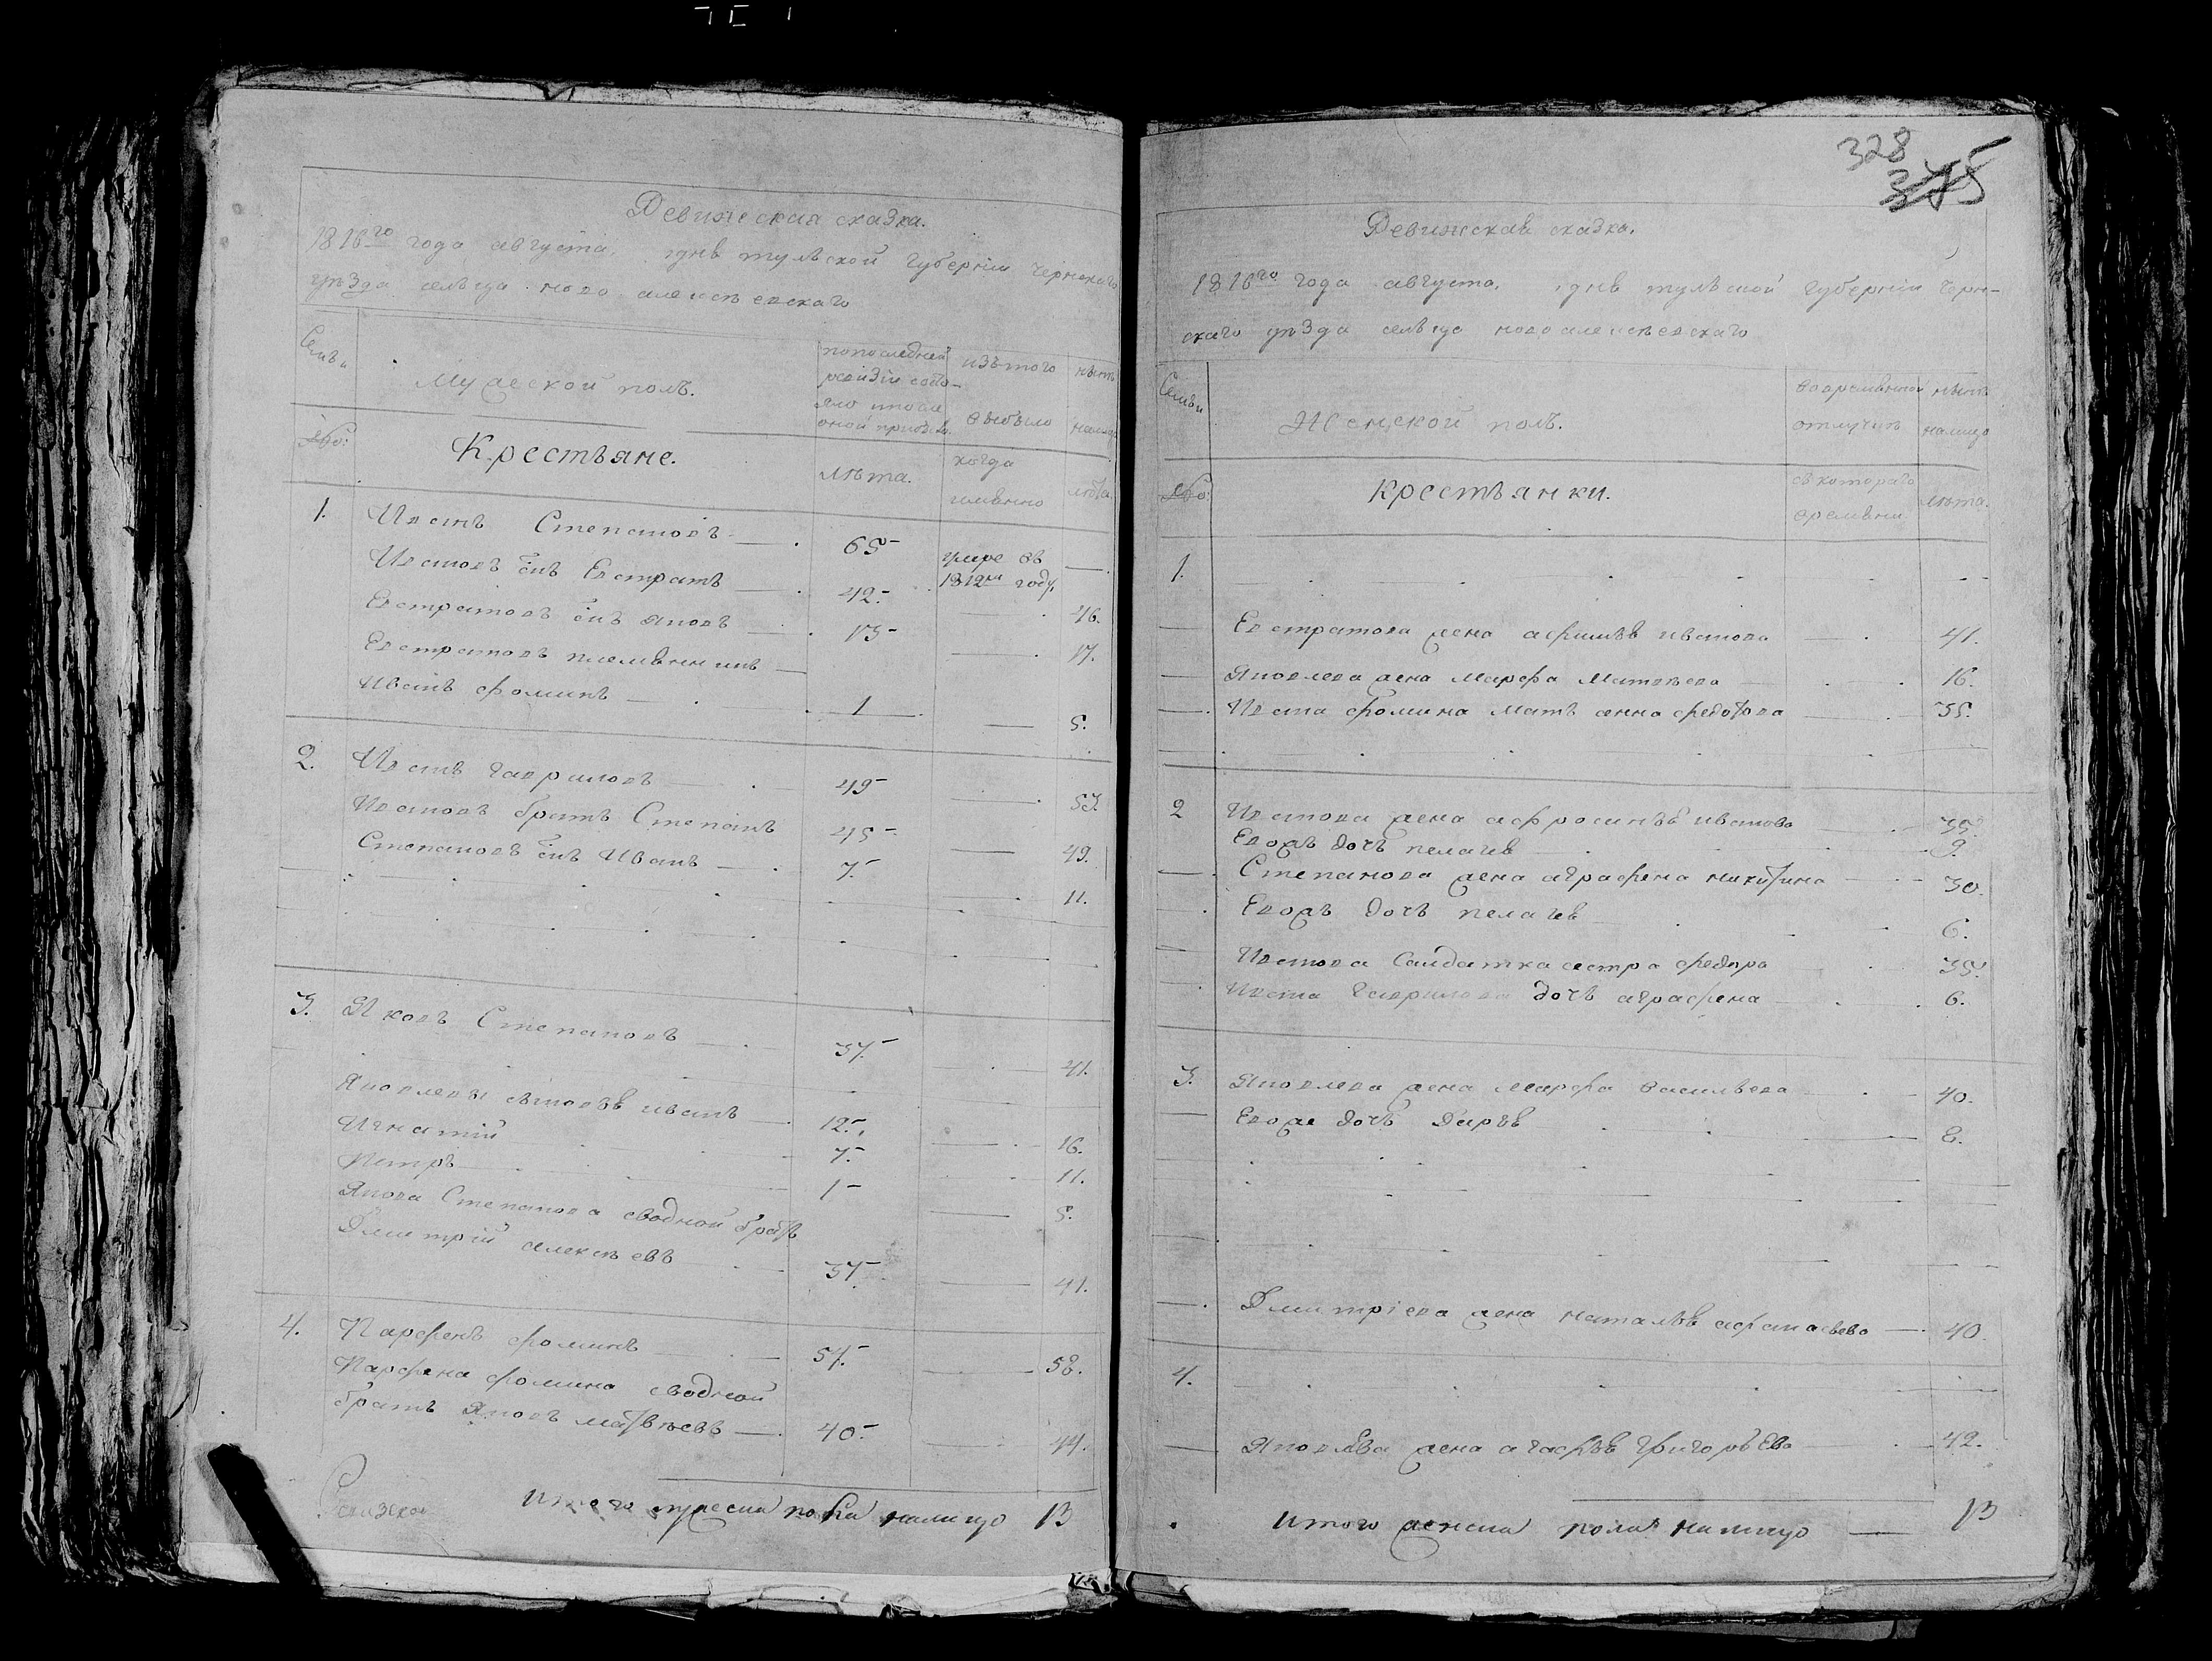 328
345
Ревижская сказка.
1816го года августа. дня тульской губернии чернскаго
уѣзда сельца ново алексѣевскаго
Семьи
Мужеской полъ.
попоследней
ревизіи состо-
яло ипосле
оной прибыло
изътого
выбыло
нынѣ
налицо
№о:
Крестьяне.
лѣта.
когда
имянно
лѣта.
1. Иванъ Степановъ 65 умре въ
1812м году.
Ивановъ снъ Евстратъ 42. 46.
Евстратовъ снъ яковъ 13 17.
Евстратовъ племянникъ
Иванъ фоминъ 1 5.
2. Иванъ гавриловъ 49 53.
Ивановъ братъ Степанъ 45 49.
Степановъ снъ Иванъ 7. 11.
3. Яковъ Степановъ 37. 41.
Яковлевы сыновья иванъ 12. 16.
Игнатій 7. 11.
Петръ 1 5.
Якова Степанова сводной братъ
Дмитрій алексѣевъ 37. 41.
4. Парфенъ фоминъ 54. 58.
Парфена фомина сводной
братъ Яковъ матвѣевъ 40. 44.
Итого мужеска пола налицо 13
Ревижская сказка.
1816го года августа. дня тульской губерніи черн-
скаго уѣзда сельца новоалексѣевскаго
Семьи
Женской полъ.
вовременной
отлучкѣ
нынѣ
налицо
№о:
крестьянки.
съ котораго
времяни
лѣта.
1.
Евстратова жена афимья иванова 41.
Яковлева жена Марфа Матвѣева 16.
Ивана фомина мать анна федотова 35.
2 Иванова жена афросинья иванова 35.
Евожъ дочь пелагея 9.
Степанова жена аграфена никитина 30.
Евожъ дочь пелагея 6.
Иванова Салдатка сестра федора 35.
Ивана гаврилова дочь аграфена 6.
3. Яковлева жена марфа васильева 40.
Евоже дочь Дарья 8.
Дмитріева жена наталья афанасьева 40
4.
Яковлева жена агафья григорьева 42.
Итого женска пола налицо 13